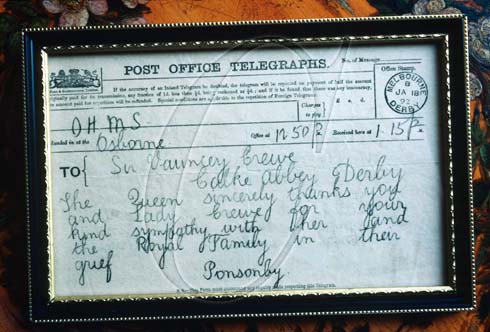 POST OFFICE TELEGRAPHS.
No. of Message
If the accuracy of an Inland Telegram be doubted, the telegram will be repeated on payment of half the amount
originally paid for its transmission, any fraction of 1d. less than ½d. being reckoned as ½d.; and if it be found that there was any inaccuracy,
the amount paid for repetition will be refunded. Special conditions are applicable to the repetition of Foreign Telegrams.
Office Stamp.
MELBOURNE
B
JA 18
92
Charges
to pay
£ s. d.
O.H.M.S
Handed in at the Osborne
Office at 12 50 P
Received here at 1-15 P
TO
Sir Vauncey Crewe
Calke Abbey Derby
The Queen sincerely thanks you
and Lady Crewe for your
kind sympathy with her and
the Royal Family in their
grief
Ponsonby.
this Form must accompany any inquiry made respecting this Telegram.